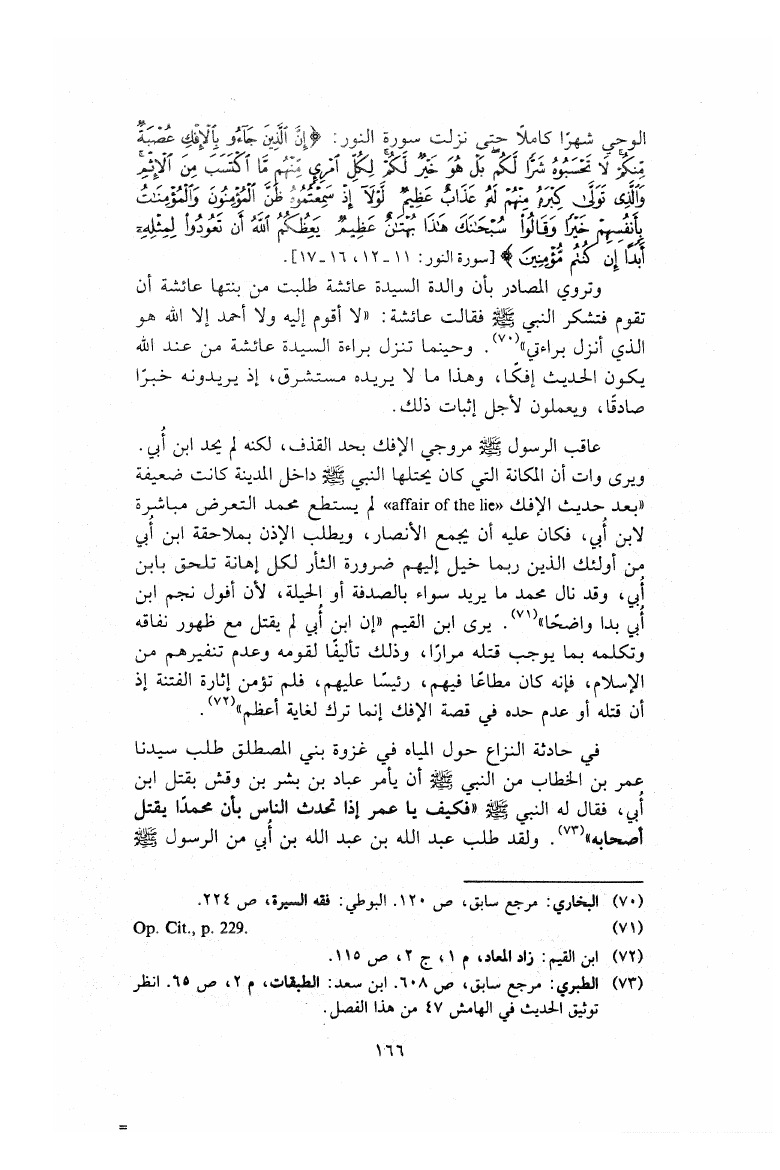 الوحي شهرًا كاملًا حتى نزلت سورة النور: ﴿إِنَّ ٱلَّذِينَ جَآءُو بِٱلْإِفْكِ عُصْبَةٌ
مِّنكُمْ لَا تَحْسَبُوهُ شَرًّا لَّكُم بَلْ هُوَ خَيْرٌ لَّكُمْ لِكُلِّ ٱمْرِئٍ مِّنْهُم مَّا ٱكْتَسَبَ مِنَ ٱلْإِثْمِ
وَٱلَّذِى تَوَلَّىٰ كِبْرَهُۥ مِنْهُمْ لَهُۥ عَذَابٌ عَظِيمٌ لَّوْلَآ إِذْ سَمِعْتُمُوهُ ظَنَّ ٱلْمُؤْمِنُونَ وَٱلْمُؤْمِنَٰتُ
بِأَنفُسِهِمْ خَيْرًا وَقَالُوا۟ سُبْحَٰنَكَ هَٰذَا بُهْتَٰنٌ عَظِيمٌ يَعِظُكُمُ ٱللَّهُ أَن تَعُودُوا۟ لِمِثْلِهِۦٓ
أَبَدًا إِن كُنتُم مُّؤْمِنِينَ﴾ [سورة النور: ١١ـ١٢، ١٦ـ١٧].
وتروي المصادر بأن والدة السيدة عائشة طلبت من بنتها عائشة أن
تقوم فتشكر النبي ﷺ فقالت عائشة: «لا أقوم إليه ولا أحمد إلا الله هو
الذي أنزل براءتي»(٧٠). وحينما تنزل براءة السيدة عائشة من عند الله
يكون الحديث إفكًا، وهذا ما لا يريده مستشرق، إذ يريدونه خبرًا
صادقًا، ويعملون لأجل إثبات ذلك.
عاقب الرسول ﷺ مروجي الإفك بحد القذف، لكنه لم يحد ابن أُبي.
ويرى وات أن المكانة التي كان يحتلها النبي ﷺ داخل المدينة كانت ضعيفة
«بعد حديث الإفك «affair of the lie» لم يستطع محمد التعرض مباشرة
لابن أُبي، فكان عليه أن يجمع الأنصار، ويطلب الإذن بملاحقة ابن أُبي
من أولئك الذين ربما خيل إليهم ضرورة الثأر لكل إهانة تلحق بابن
أُبي، وقد نال محمد ما يريد سواء بالصدفة أو الحيلة، لأن أفول نجم ابن
أُبي بدا واضحًا»(٧١). يرى ابن القيم «إن ابن أُبي لم يقتل مع ظهور نفاقه
وتكلمه بما يوجب قتله مرارًا، وذلك تأليفًا لقومه وعدم تنفيرهم من
الإسلام، فإنه كان مطاعًا فيهم، رئيسًا عليهم، فلم تؤمن إثارة الفتنة إذ
أن قتله أو عدم حده في قصة الإفك إنما ترك لغاية أعظم»(٧٢).
في حادثة النزاع حول المياه في غزوة بني المصطلق طلب سيدنا
عمر بن الخطاب من النبي ﷺ أن يأمر عباد بن بشر بن وقش بقتل ابن
أُبي، فقال له النبي ﷺ «فكيف يا عمر إذا تحدث الناس بأن محمدًا يقتل
أصحابه»(٧٣). ولقد طلب عبد الله بن عبد الله بن أُبي من الرسول ﷺ
(٧٠) البخاري: مرجع سابق، ص ١٢٠. البوطي: فقه السيرة، ص ٢٢٤.
(٧١) Op. Cit., p. 229.
(٧٢) ابن القيم: زاد المعاد، م ١، ج ٢، ص ١١٥.
(٧٣) الطبري: مرجع سابق، ص ٦٠٨. ابن سعد: الطبقات، م ٢، ص ٦٥. انظر
توثيق الحديث في الهامش ٤٧ من هذا الفصل.
١٦٦
=